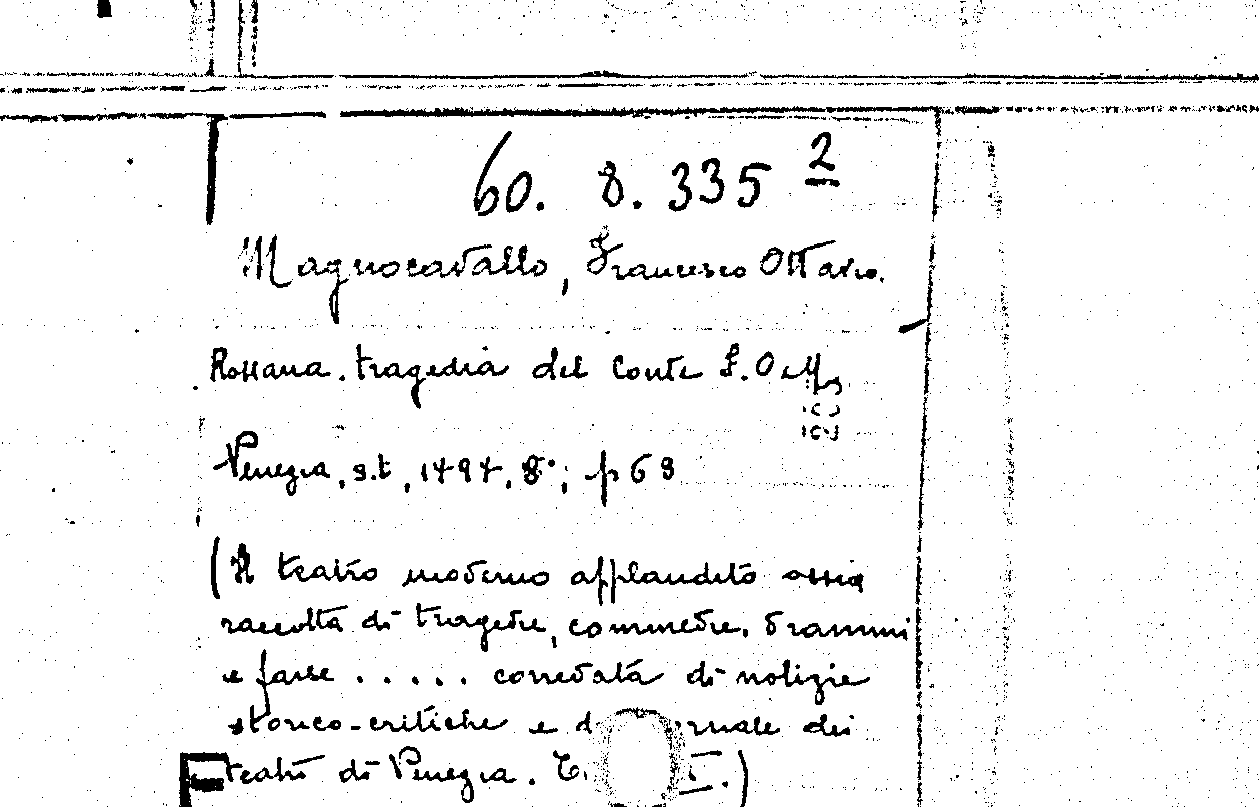 60. 8. 335 2
Magnocavallo, Francesco Ottavio.
Rossana. tragedia del Conte F. O. M.
Venezia, s.t, 1797. 8°; p 69
(Il teatro moderno applaudito ossia
raccolta di tragedie, commedie, drammi
e farse ..... corredata di notizie
storico-critiche e d rnale dei
teatri di Venezia. T. I.)